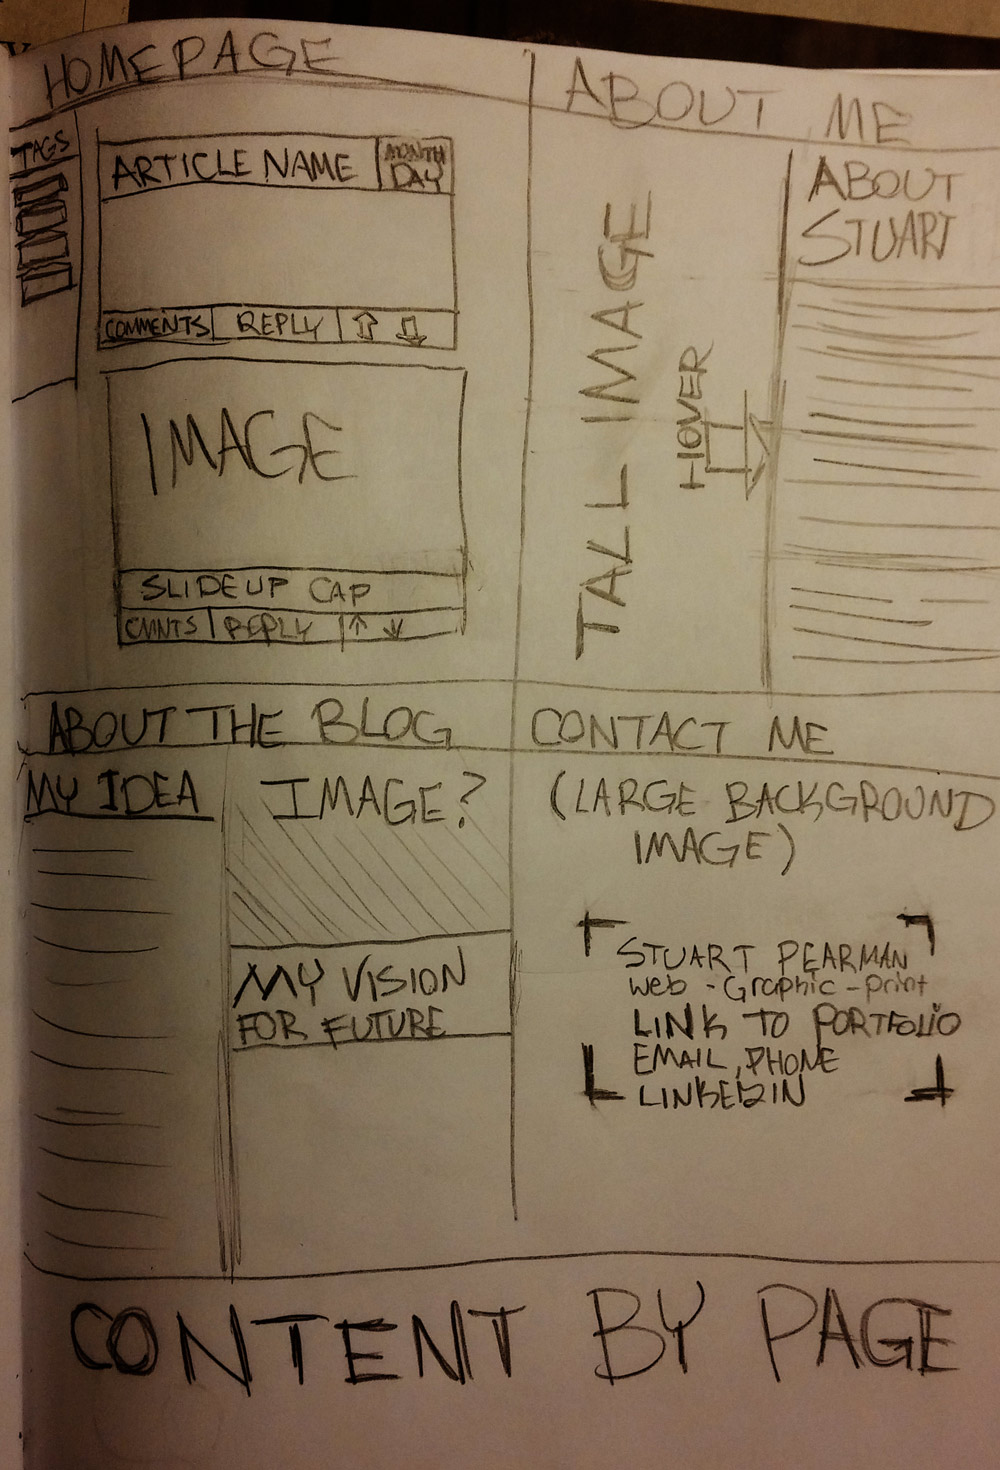 HOMEPAGE
TAGS
ARTICLE NAME
MONTH
DAY
COMMENTS REPLY
IMAGE
SLIDE UP CAP
CMNTS REPLY
ABOUT ME
TALL IMAGE
HOVER
ABOUT
STUART
ABOUT THE BLOG
MY IDEA
IMAGE?
MY VISION
FOR FUTURE
CONTACT ME
(LARGE BACKGROUND
IMAGE)
STUART PEARMAN
web - Graphic - print
LINK TO PORTFOLIO
EMAIL, PHONE
LINKEDIN
CONTENT BY PAGE